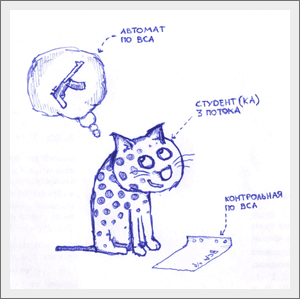 АВТОМАТ
ПО ВСА
СТУДЕНТ(КА)
3 ПОТОКА
КОНТРОЛЬНАЯ
ПО ВСА